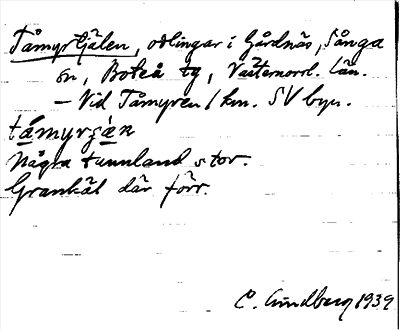 Tåmyrtjälen, odlingar i Gårdnäs, Sånga
sn, Boteå tg, Västernorrl. län.
— Vid Tåmyren 1 km. SV byn.
támyrʒàn
Några tunnland stor.
Grankäl där förr.
C. Lindberg 1939